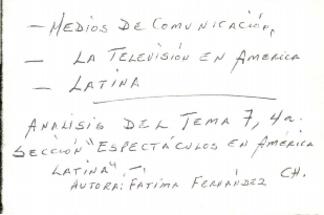 — MEDIOS DE COMUNICACIÓN,
— LA TELEVISIÓN EN AMERICA
— LATINA
ANALISIS DEL TEMA 7, 4a.
SECCIÓN "ESPECTÁCULOS EN AMÉRICA
LATINA" —,
AUTORA: FATIMA FERNÁNDEZ CH.